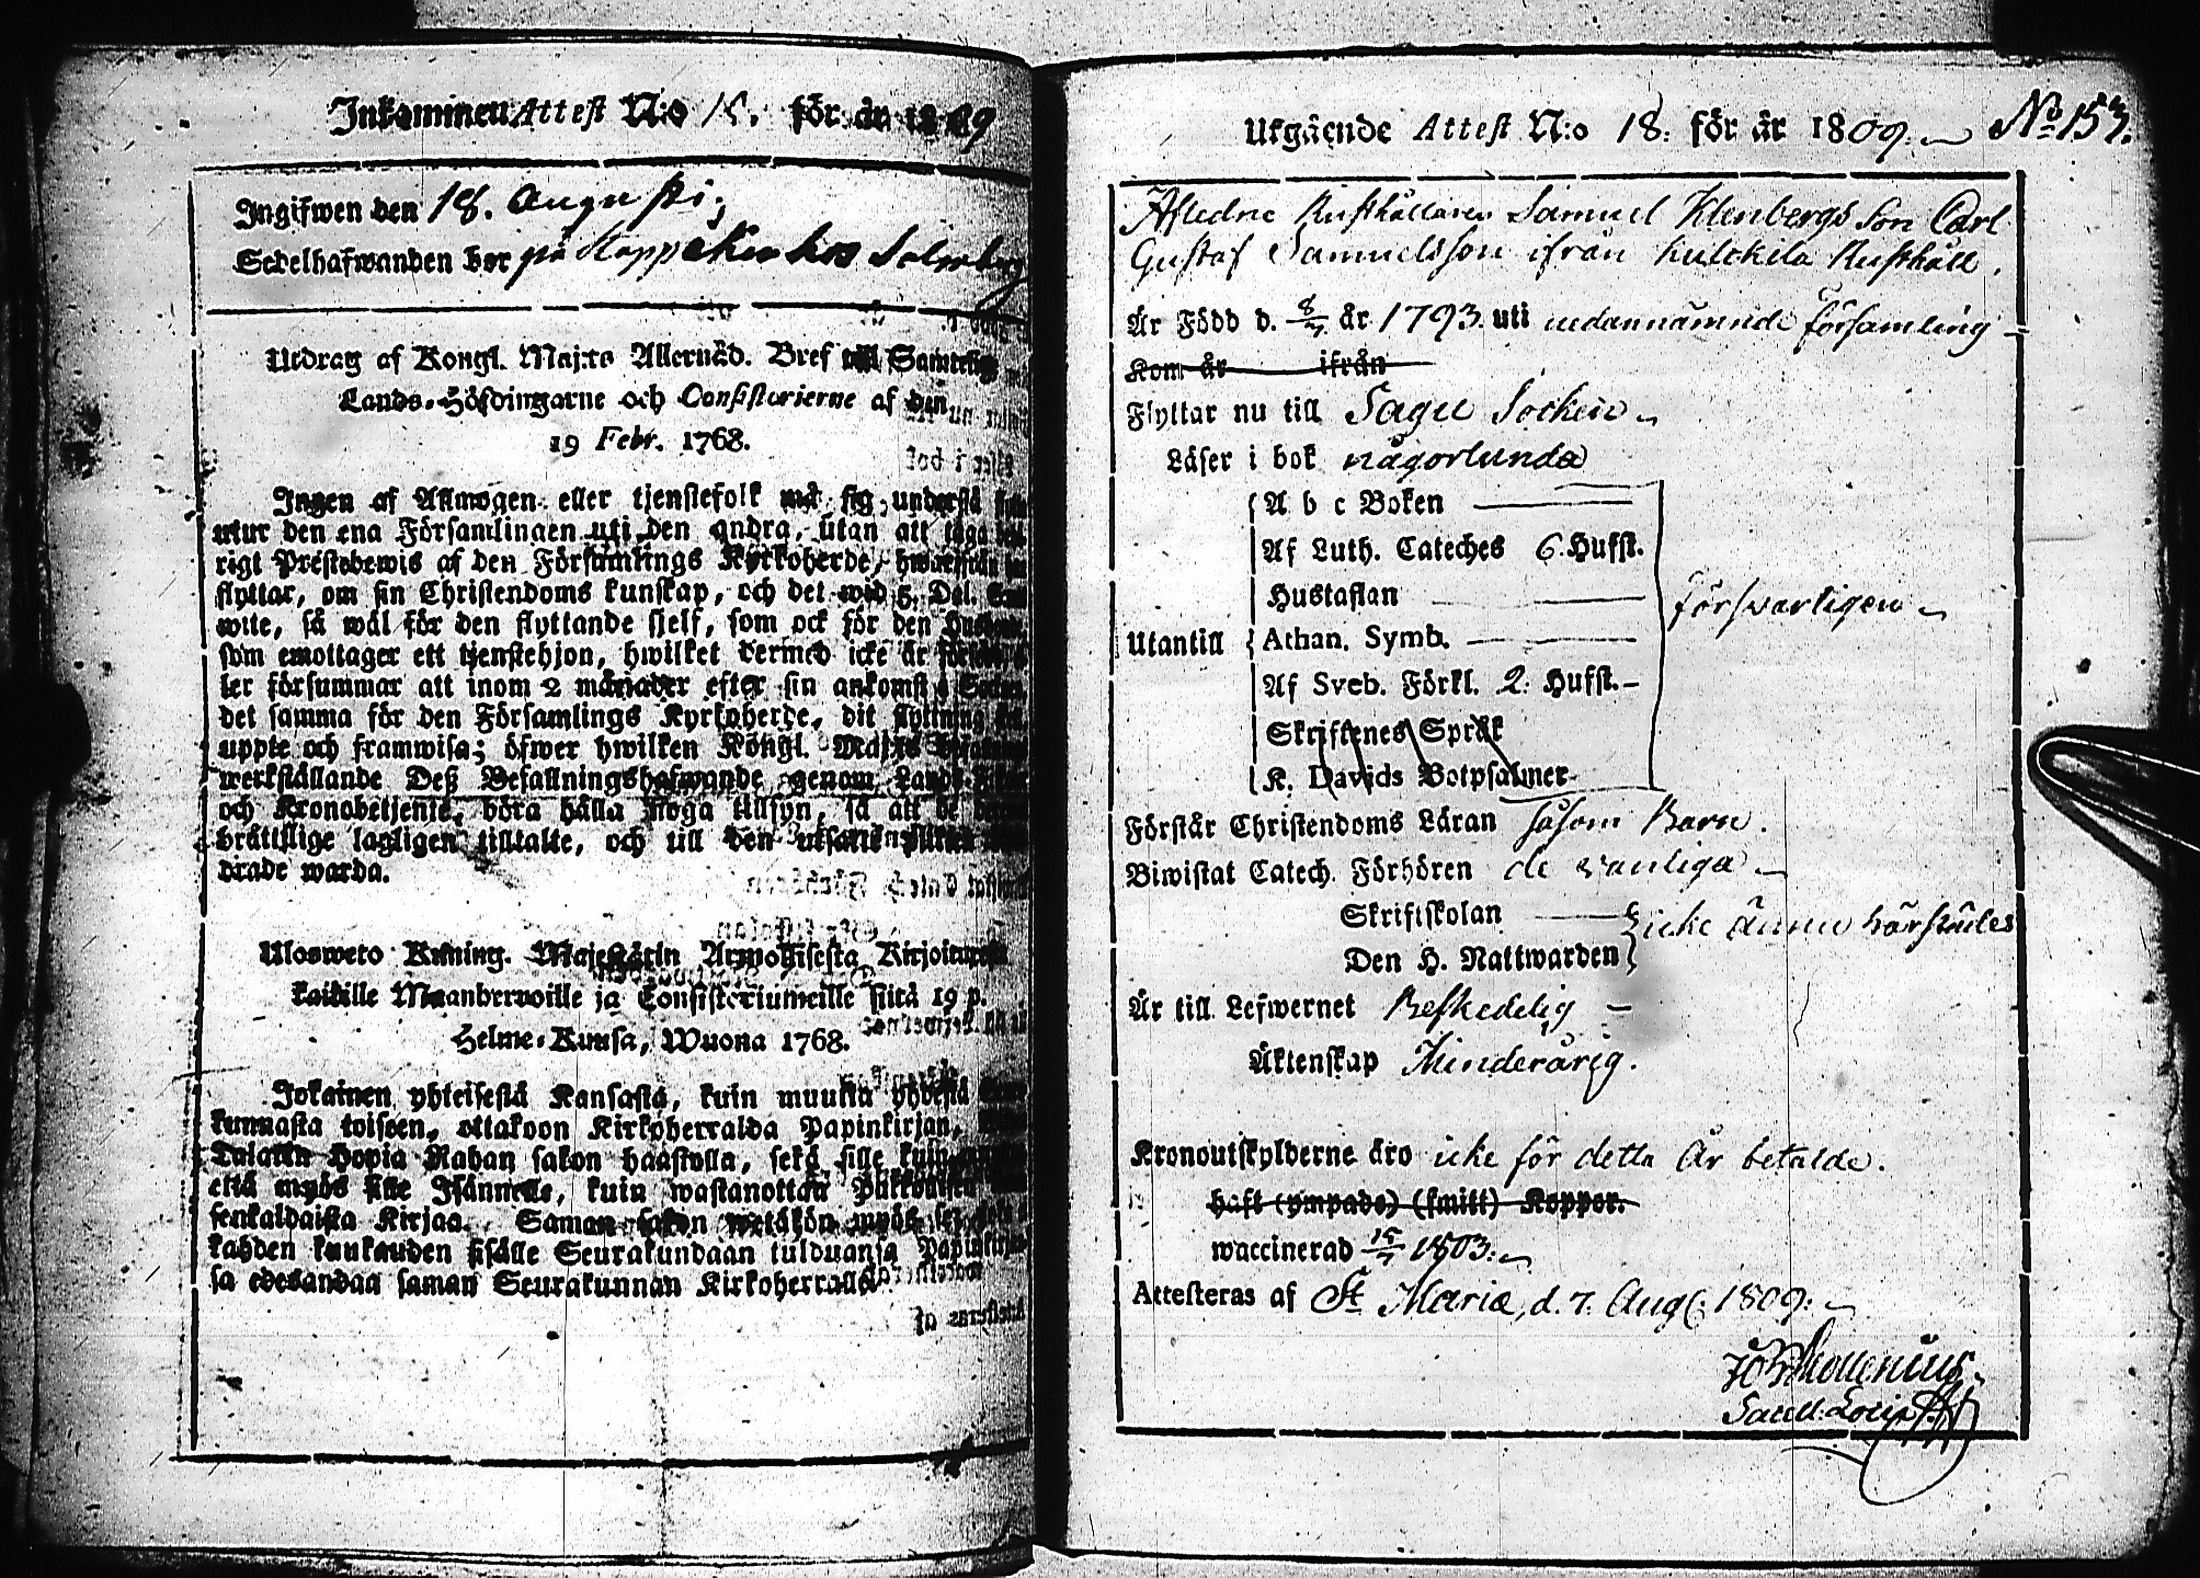 Inkommen Attest N:o 18. för år 1809
Ingifwen den 18. Augusti;
Sedelhafwanden bor på hos
Utdrag af Kongl. Maj:ts Allernåd. Bref till Samtelig
Lands-Höfdingarne och Consistorierne af den
19 Febr. 1768.
Ingen af Allmogen eller tjenstefolk må sig understå
utur den ena Församlingen uti den andra, utan att taga
rigt Prestebewis af den Församlings Kyrkoherde, hwarifrån
flyttar, om sin Christendoms kunskap, och det wid 5. Dal.
wite, så wäl för den flyttande sjelf, som ock för den
som emottager ett tjenstehjon, hwilket dermed icke är
ler försummar att inom 2 månader efter sin ankomst
det samma för den Församlings Kyrkoherde, dit flyttning
uppte och framwisa; öfwer hwilken Kongl. Maj:ts
werkställande Deß Befallningshafwande genom Lands
och Kronobetjente, böra hålla noga tillsyn, så att de
brättslige lagligen tilltalte, och till den utsatte plikten
drade warda.
Ulosweto Kuning. Majestätin Armollisesta Kirjoituresta
kaikille Maanherroille ja Consistoriumeille siitä 19 p.
Helme-Kuusa, Wuona 1768.
Jokainen yhteisestä Kansasta, kuin muutta yhdestä
kunnasta toiseen, ottakoon Kirkoherralda Papinkirjan,
Talarin Hopia Rahan sakon haastolla, sekä sille kuin
että myös sille Isännelle, kuin wastanottaa Palkkollisen
senkaldaista Kirjaa. Saman sakon wetäkön myös se,
kahden kuukauden sisälle Seurakundaan tulduansa Papinkirjan
sa edesandaa saman Seurakunnan Kirkoherralle.
Utgående Attest N:o 18. för år 1809. No 153.
Afledne Rusthållaren Samuel Klenbergs Son Carl
Gustaf Samuelsson ifrån Kulckila Rusthåll.
Är Född d. 8/7 år 1793. uti nedannämnde Församling
Kom år ifrån
Flyttar nu till Sagu Socken
Läser i bok någorlunda
A b c Boken
Af Luth. Cateches 6. Hufst.
Hustaflan
försvarligen
Utantill Athan. Symb.
Af Sveb. Förkl. 2. Hufst.
Skriftenes Språk
K. Davids Botpsalmer
Förstår Christendoms Läran såsom Barn.
Biwistat Catech. Förhören de vanliga
Skriftskolan
icke ännu härstädes
Den H. Nattwarden
Är till Lefwernet Beskedelig
Äktenskap Minderårig.
Kronoutskylderne äro icke för detta År betalde.
haft (ympade) (smitt) Koppor.
waccinerad 15/7 1803.
Attesteras af St Mariæ, d. 7. Aug. 1809.